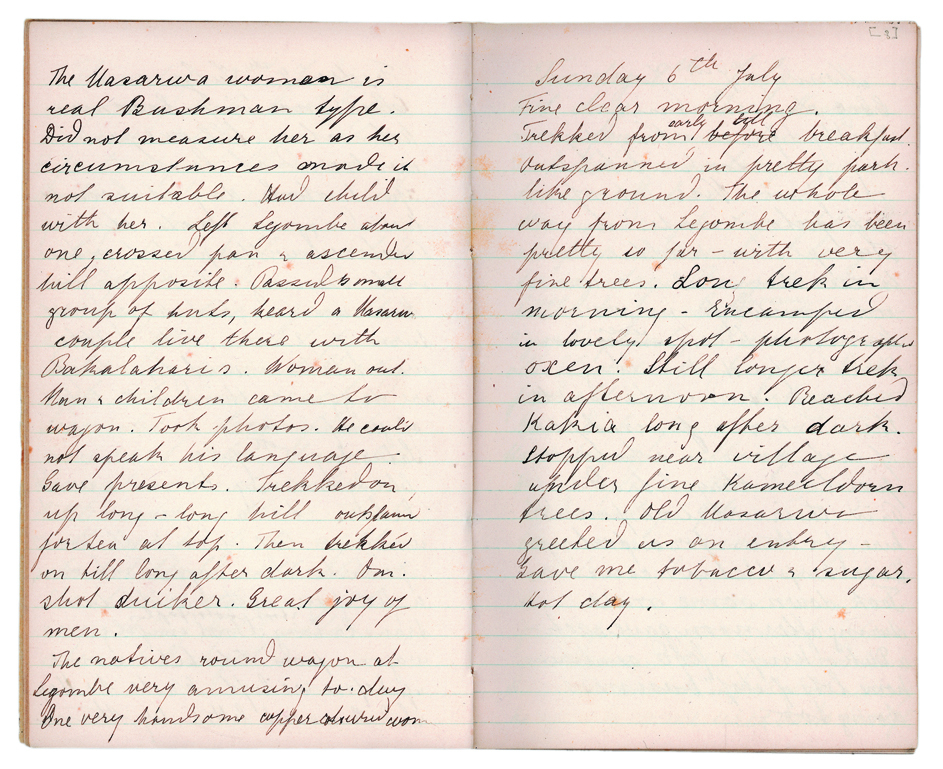 The Masarwa woman is
real Bushman type.
Did not measure her as her
circumstances made it
not suitable. Had child
with her. Left Legombe about
one, crossed pan & ascended
hill opposite. Passed small
group of huts, heard a Masarwa
couple live there with
Bakalaharis. Woman out.
Man & children came to
wagon. Took photos. He could
not speak his language.
Gave presents. Trekked on,
up long - long hill outspann
for tea at top. Then trekked
on till long after dark. Om.
shot duiker. Great joy of
men.
The natives round wagon at
Legombe very amusing to-day
One very handsome copper coloured wom
[3]
Sunday 6th July
Fine clear morning.
Trekked from early till before breakfast.
Outspanned in pretty park-
like ground. The whole
way from Legombe has been
pretty so far - with very
fine trees. Long trek in
morning - Encamped
in lovely spot - photographed
oxen. Still longer trek
in afternoon. Reached
Kakia long after dark.
Stopped near village
under fine Kameeldorn
trees. Old Masarwa
greeted us on entry -
Gave me tobacco & sugar.
Hot day.